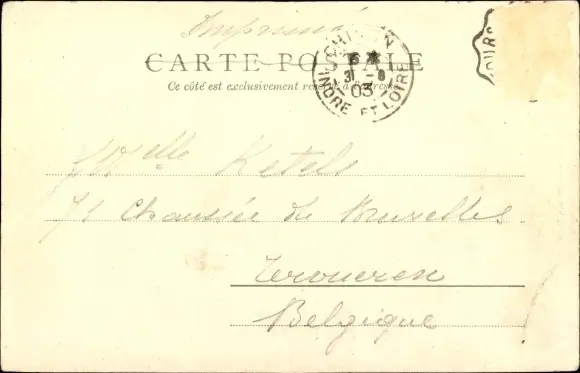 Imprimé
CARTE POSTALE
Ce côté est exclusivement réservé à l'adresse
CHINON
31 - 8
03
INDRE ET LOIRE
TOURS
Melle Ketels
71 Chaussée de Bruxelles
Tervueren
Belgique